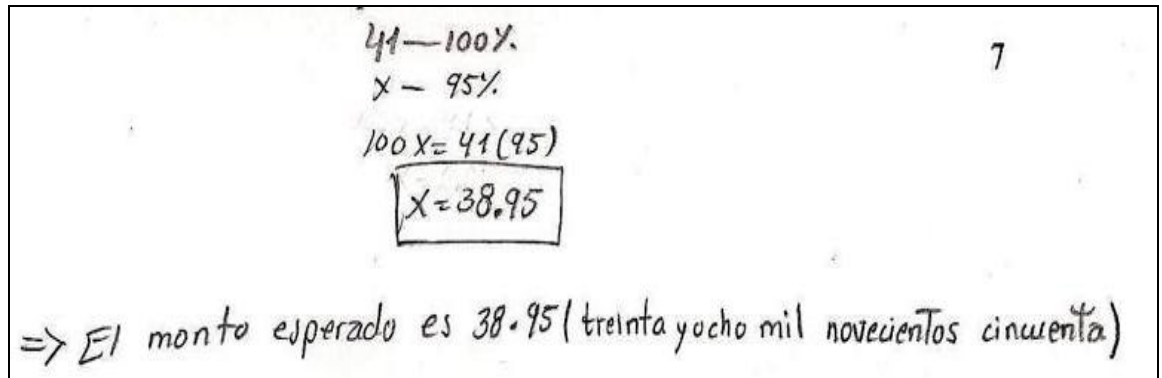 41—100%.
7
x — 95%.
100x= 41(95)
x=38.95
=> El monto esperado es 38.95 (treinta y ocho mil novecientos cincuenta)